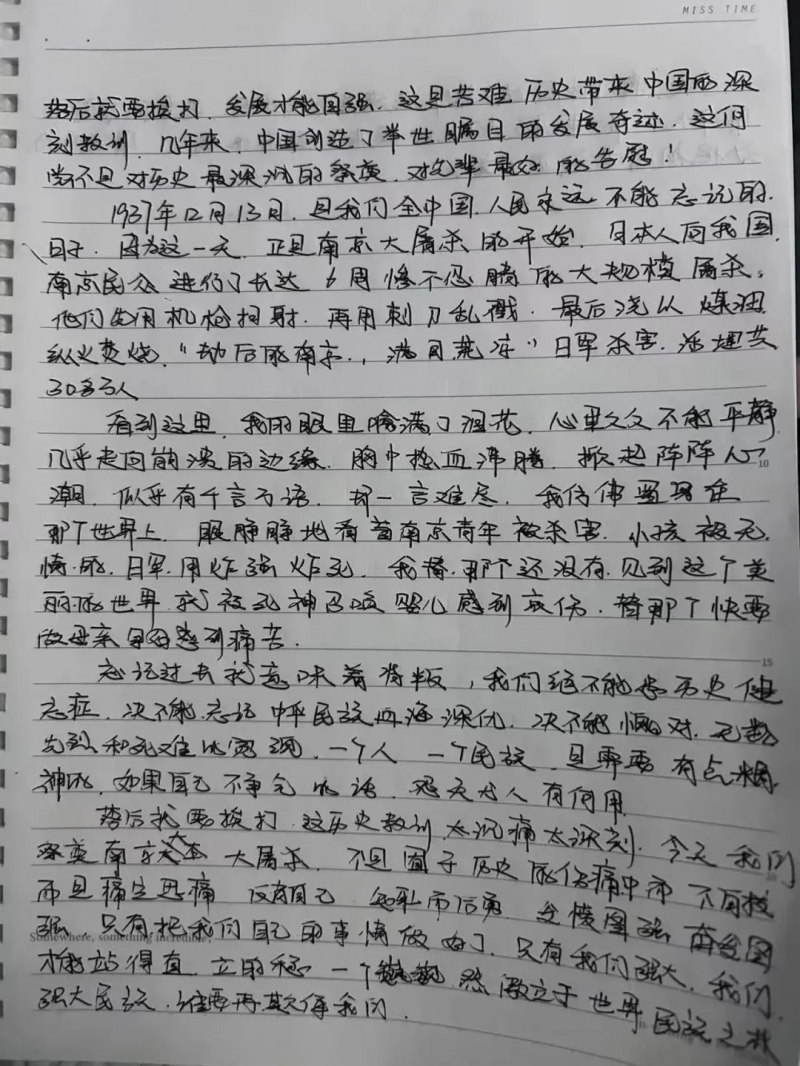 MISS TIME
落后就要挨打，发展才能自强。这是苦难历史带来中国的深
刻教训，几年来，中国创造了举世瞩目的发展奇迹，这何
尝不是对历史最深沉的祭奠，对先辈最好的告慰！
1937年12月13日，是我们全中国人民永远不能忘记的
日子，因为这一天，正是南京大屠杀的开始，日本人向我国
南京民众进行了长达6周惨不忍睹的大规模屠杀。
他们先用机枪扫射，再用刺刀乱戳，最后浇以煤油，
纵火焚烧，“劫后的南京，满目荒凉”日军杀害，活埋共
30多万人
看到这里，我的眼里噙满了泪花，心里久久不能平静
几乎走向崩溃的边缘，胸中热血沸腾，掀起阵阵人心
潮，似乎有千言万语，却一言难尽，我仿佛置身在
那个世界上，眼睁睁地看着南京青年被杀害，小孩被无
情的，日军用炸弹炸死，我替那个还没有见到这个美
丽的世界就被死神召唤婴儿感到哀伤，替那个快要
做母亲 感到痛苦．
忘记过去就意味着背叛，我们绝不能患历史健
忘症，决不能忘记中华民族血海深仇，决不能愧对，无数
先烈和死难的冤魂，一个人 一个民族，是需要有点精
神的，如果自己不争气的话，怨天尤人有何用
落后就要挨打，这历史教训，太沉痛太深刻，今天我们
祭奠南京大 大屠杀，不是囿于历史的伤痛中而不自拔
而是痛定思痛 反省自己 知耻而后勇，
强，只有把我们自己的事情做好了，只有我们强大，我们
Somewhere, something incredible
才能站得直，立的稳 一个巍巍然激立于世界民族之林
强大民族，谁要再欺侮我们．
10
15